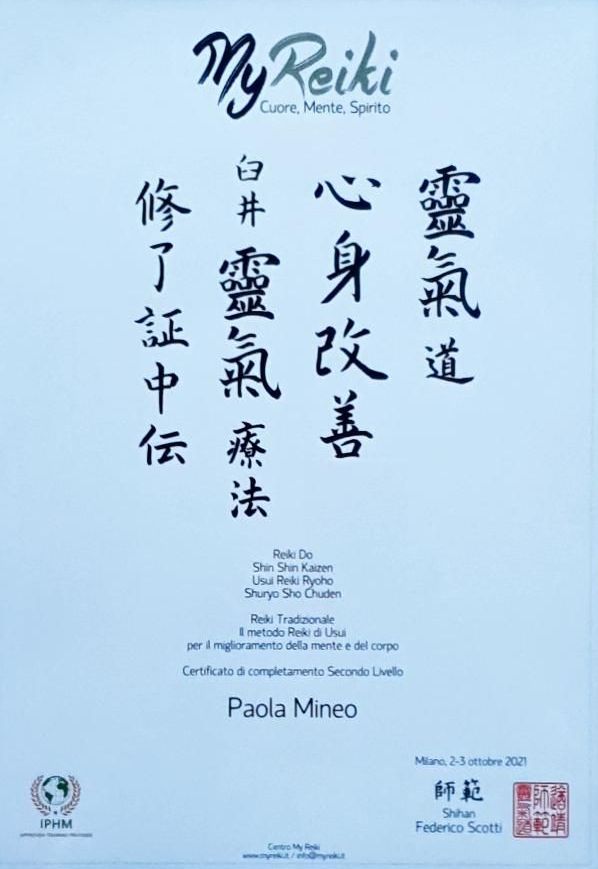 MyReiki
Cuore, Mente, Spirito
靈氣道
心身改善
臼井靈氣療法
修了証中伝
Reiki Do
Shin Shin Kaizen
Usui Reiki Ryoho
Shuryo Sho Chuden
Reiki Tradizionale
Il metodo Reiki di Usui
per il miglioramento della mente e del corpo
Certificato di completamento Secondo Livello
Paola Mineo
Milano, 2-3 ottobre 2021
師範
Shihan
Federico Scotti
IPHM
APPROVED TRAINING PROVIDER
Centro My Reiki
www.myreiki.it / info@myreiki.it